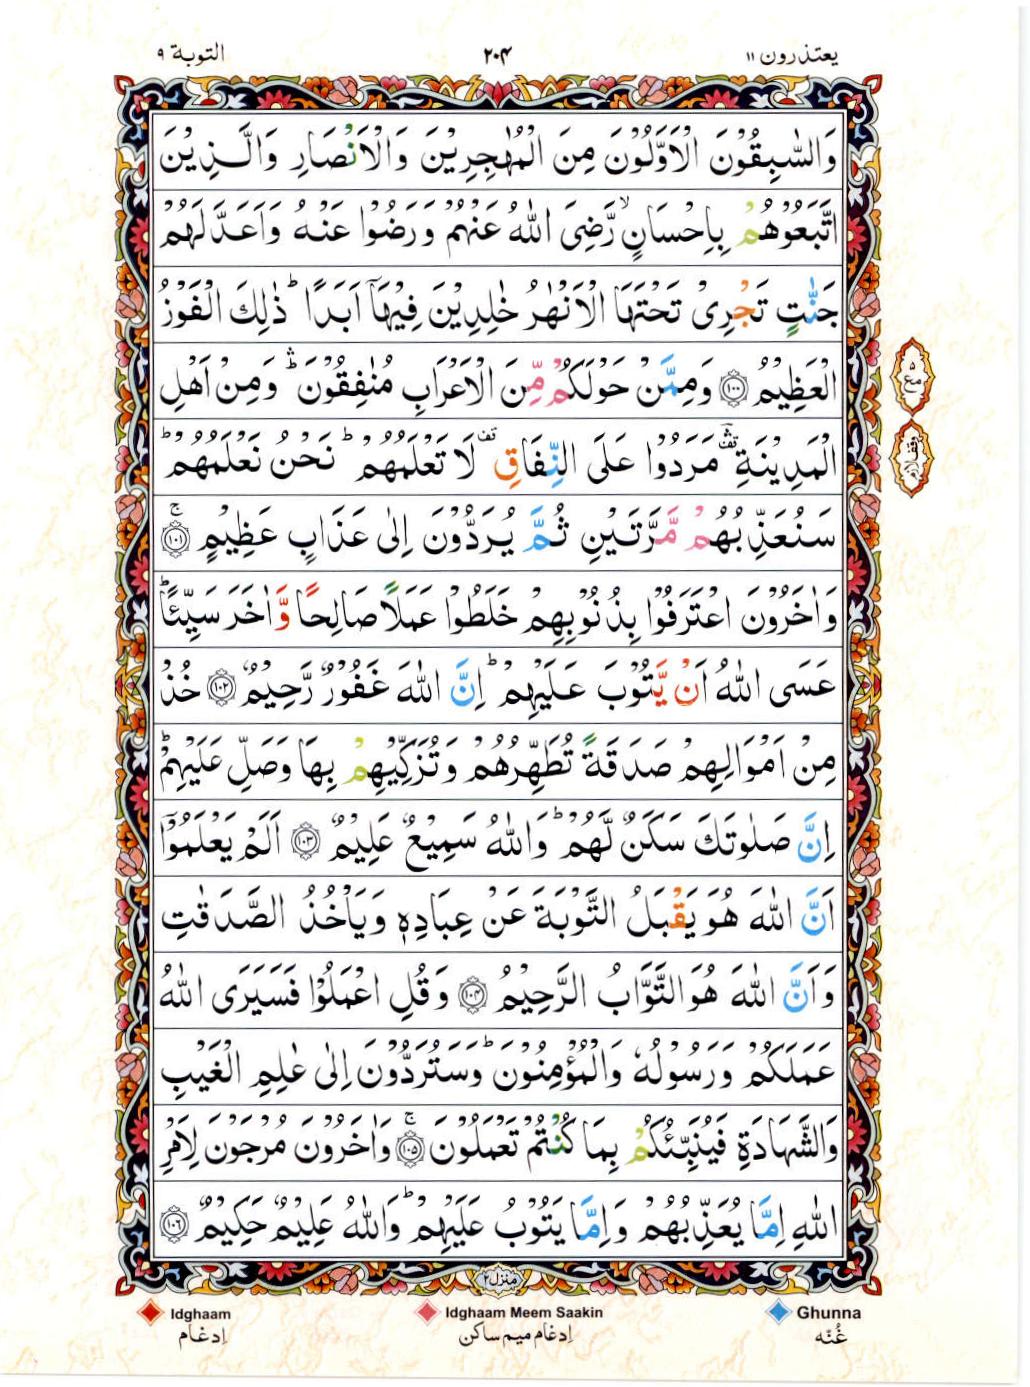 يعتذرون ١١
٢٠٤
التوبة ٩
وَالسّٰبِقُوْنَ الْاَوَّلُوْنَ مِنَ الْمُهٰجِرِيْنَ وَالْاَنْصَارِ وَالَّذِيْنَ
اتَّبَعُوْهُمْ بِاِحْسَانٍ ۙ رَّضِىَ اللّٰهُ عَنْهُمْ وَرَضُوْا عَنْهُ وَاَعَدَّ لَهُمْ
جَنّٰتٍ تَجْرِىْ تَحْتَهَا الْاَنْهٰرُ خٰلِدِيْنَ فِيْهَاۤ اَبَدًا ؕ ذٰلِكَ الْفَوْزُ
الْعَظِيْمُ ﴿۱۰۰﴾ وَمِمَّنْ حَوْلَكُمْ مِّنَ الْاَعْرَابِ مُنٰفِقُوْنَ ؕۛ وَمِنْ اَهْلِ
الْمَدِيْنَةِ ؔۛ مَرَدُوْا عَلَى النِّفَاقِ لَا تَعْلَمُهُمْ ؕ نَحْنُ نَعْلَمُهُمْ ؕ
سَنُعَذِّبُهُمْ مَّرَّتَيْنِ ثُمَّ يُرَدُّوْنَ اِلٰى عَذَابٍ عَظِيْمٍ ﴿۱۰۱﴾ ۚ
وَاٰخَرُوْنَ اعْتَرَفُوْا بِذُنُوْبِهِمْ خَلَطُوْا عَمَلًا صَالِحًا وَّاٰخَرَ سَيِّئًا ؕ
عَسَى اللّٰهُ اَنْ يَّتُوْبَ عَلَيْهِمْ ؕ اِنَّ اللّٰهَ غَفُوْرٌ رَّحِيْمٌ ﴿۱۰۲﴾ خُذْ
مِنْ اَمْوَالِهِمْ صَدَقَةً تُطَهِّرُهُمْ وَتُزَكِّيْهِمْ بِهَا وَصَلِّ عَلَيْهِمْ ؕ
اِنَّ صَلٰوتَكَ سَكَنٌ لَّهُمْ ؕ وَاللّٰهُ سَمِيْعٌ عَلِيْمٌ ﴿۱۰۳﴾ اَلَمْ يَعْلَمُوْۤا
اَنَّ اللّٰهَ هُوَ يَقْبَلُ التَّوْبَةَ عَنْ عِبَادِهٖ وَيَاْخُذُ الصَّدَقٰتِ
وَاَنَّ اللّٰهَ هُوَ التَّوَّابُ الرَّحِيْمُ ﴿۱۰۴﴾ وَقُلِ اعْمَلُوْا فَسَيَرَى اللّٰهُ
عَمَلَكُمْ وَرَسُوْلُهٗ وَالْمُؤْمِنُوْنَ ؕ وَسَتُرَدُّوْنَ اِلٰى عٰلِمِ الْغَيْبِ
وَالشَّهَادَةِ فَيُنَبِّئُكُمْ بِمَا كُنْتُمْ تَعْمَلُوْنَ ﴿۱۰۵﴾ ۚ وَاٰخَرُوْنَ مُرْجَوْنَ لِاَمْرِ
اللّٰهِ اِمَّا يُعَذِّبُهُمْ وَاِمَّا يَتُوْبُ عَلَيْهِمْ ؕ وَاللّٰهُ عَلِيْمٌ حَكِيْمٌ ﴿۱۰۶﴾
وقف لازم
منزل ٢
Idghaam Idghaam Meem Saakin Ghunna
اِدغام اِدغام میم ساکن غُنّه